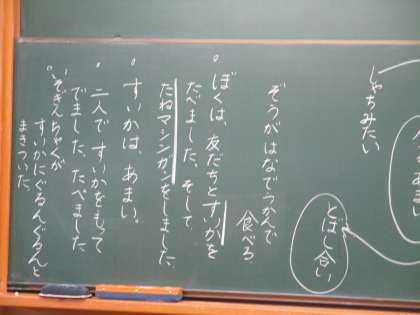 しゃちみたい
とばし合い
ぞうがはなでつかんで
食べる
ぼくは、友だちとすいかを
たべました、そして
たねマシンガンをしました、
すいかは、あまい。
二人ですいかをもって
でました、たべました
いそぎんちゃくが
すいかにぐるんぐるんと
まきついた